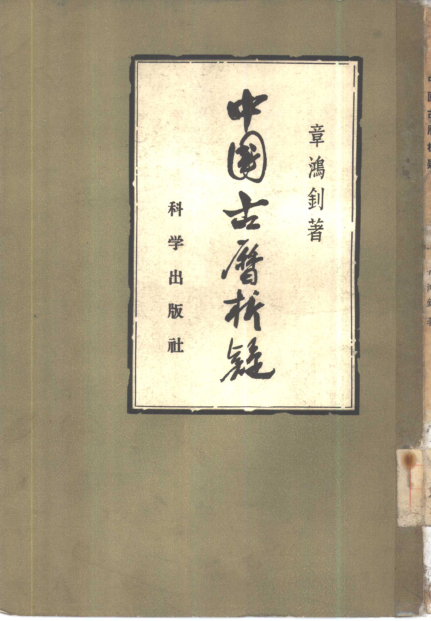 章鴻釗著
中国古曆析疑
科学出版社